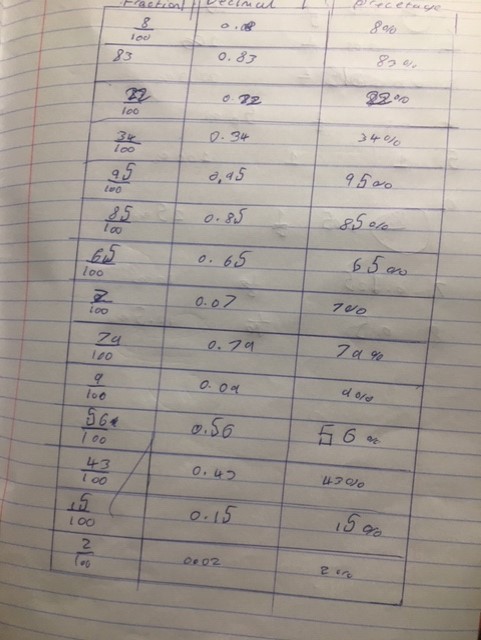 Fraction Decimal percetage
8/100 0.8 8%
83 0.83 83%
22/100 0.22 22%
34/100 0.34 34%
95/100 0.95 95%
85/100 0.85 85%
65/100 0.65 65%
7/100 0.07 7%
79/100 0.79 79%
9/100 0.09 9%
56/100 0.56 56%
43/100 0.43 43%
15/100 0.15 15%
2/100 0.02 2%